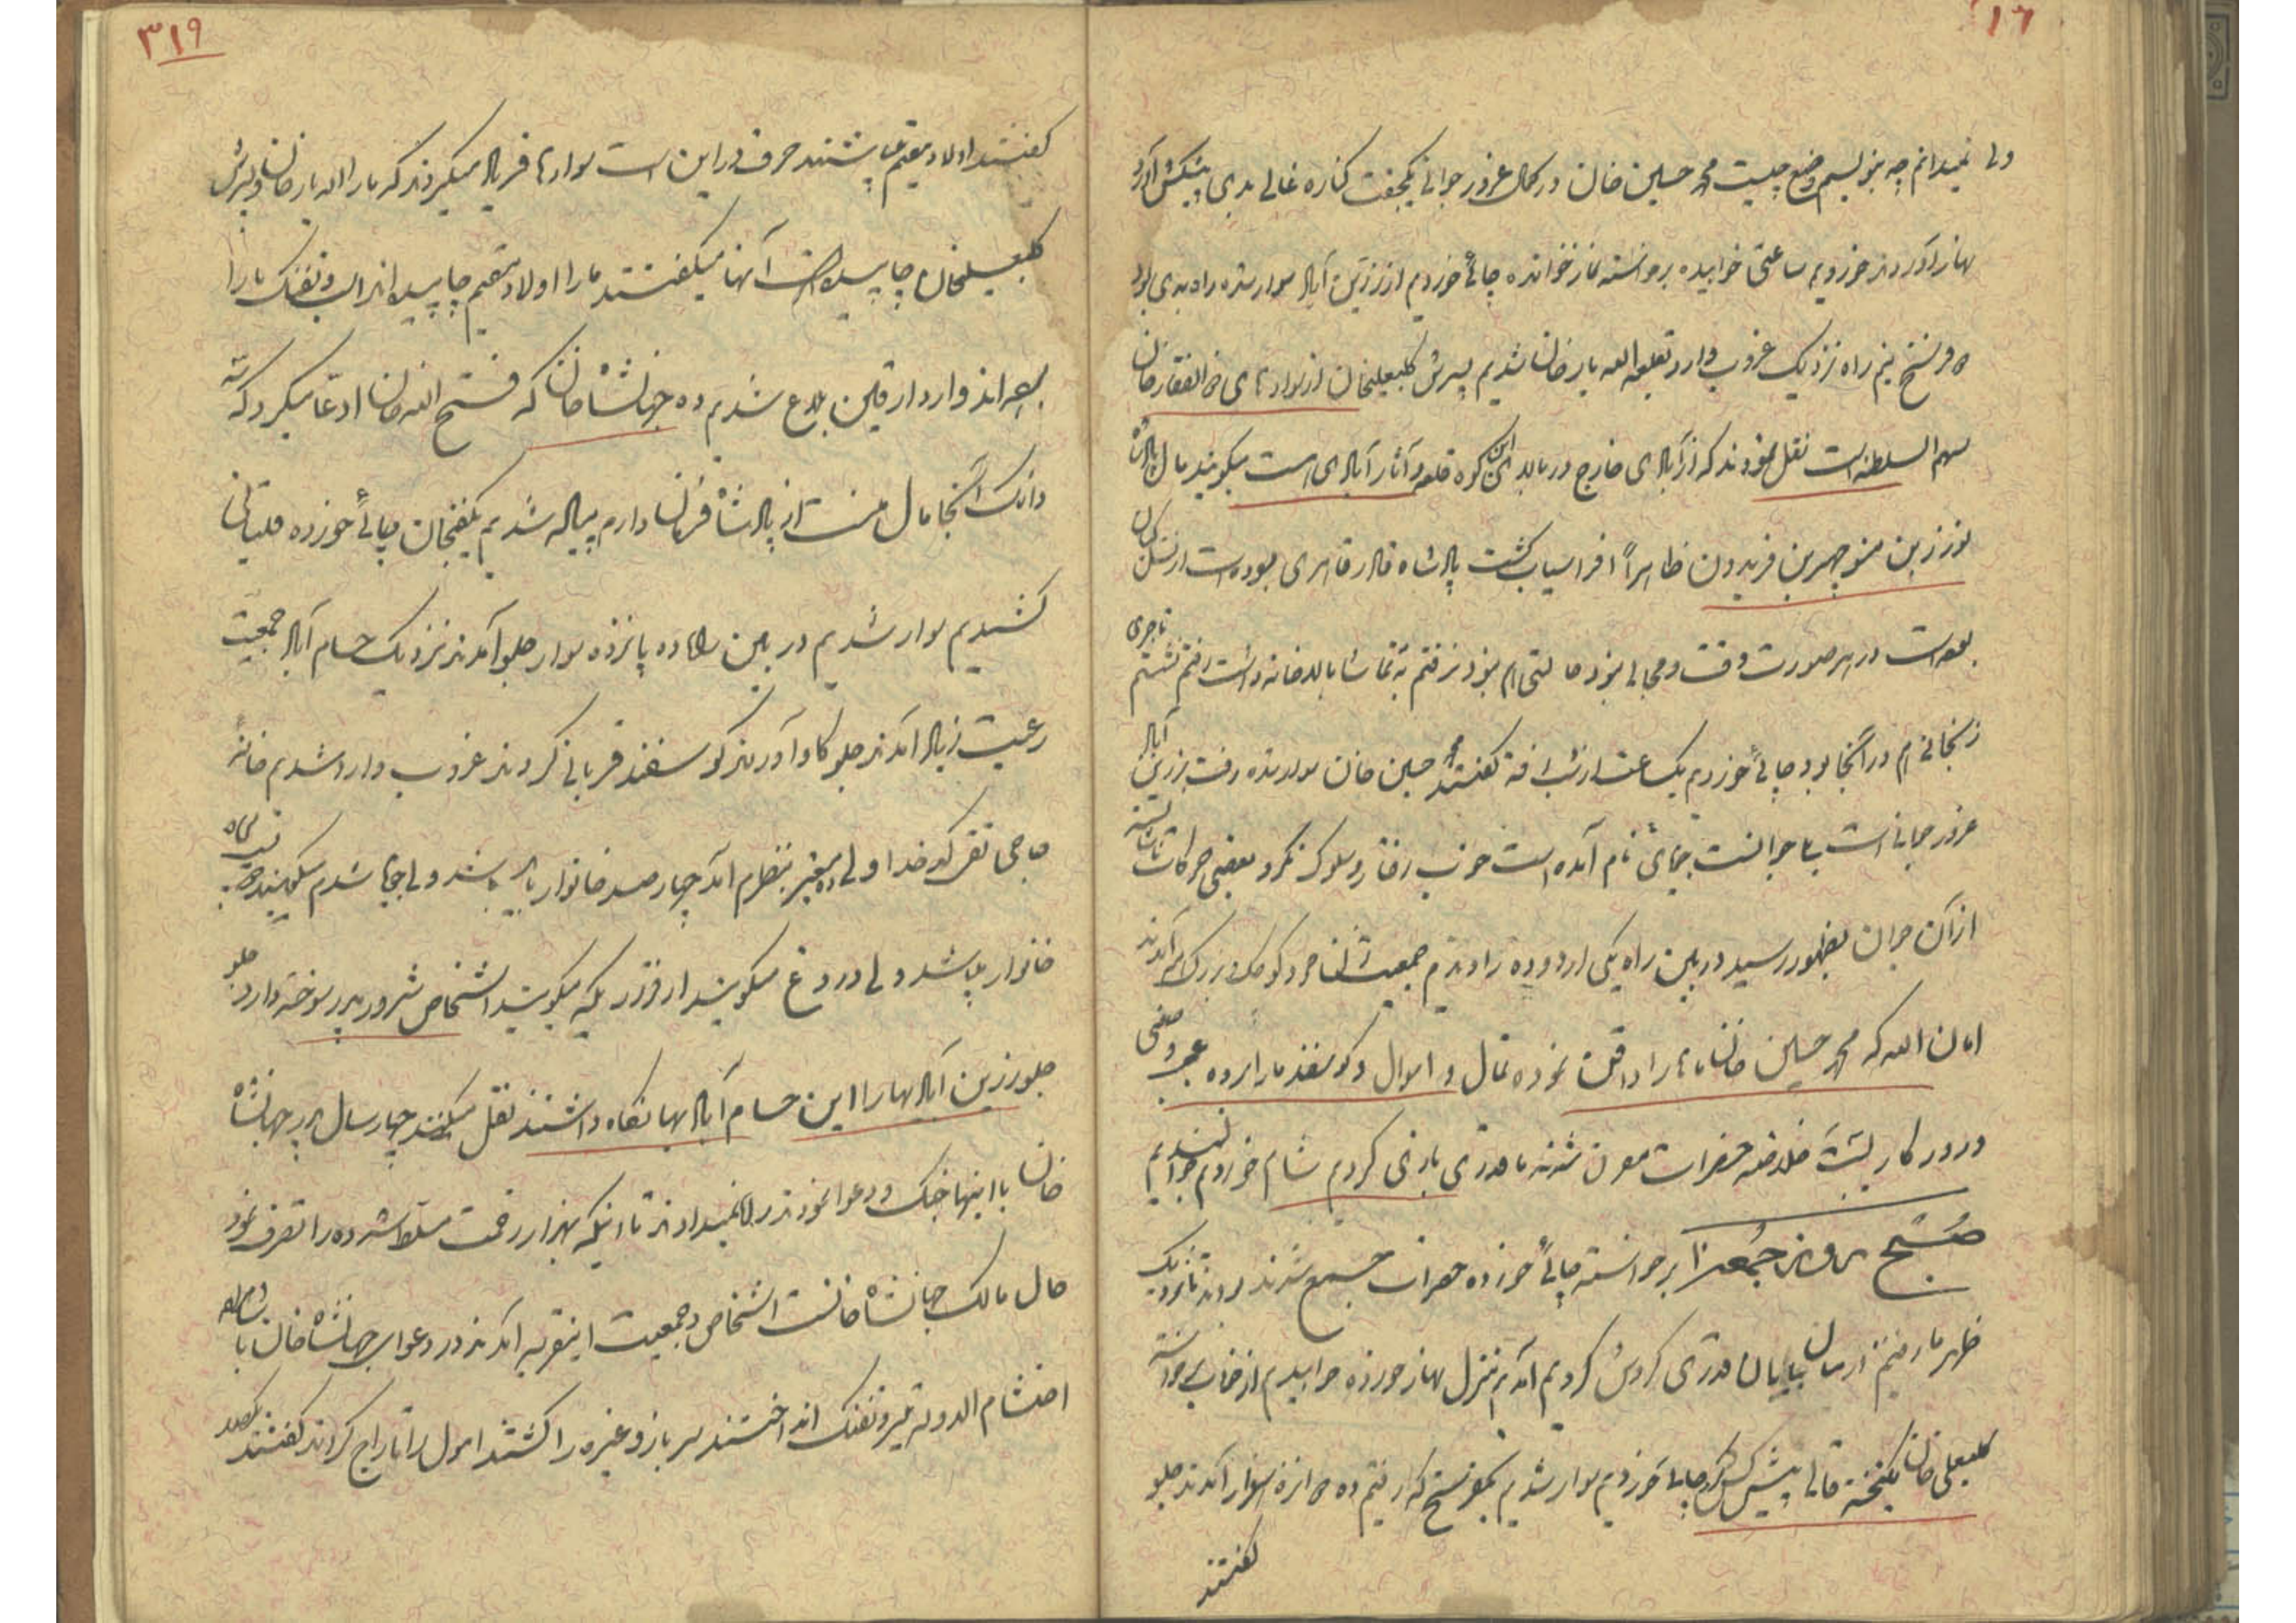 ولی نمیدانم چه بنویسم وضع چیست محمد حسین خان در کمال غرور جوانی یکجفت کناره غالی بدی پیشکش آورد
نهار آوردند خوردیم ساعتی خوابیده برخواسته نماز خوانده چائی خوردیم از زرین آباد سوار شده راه بدی بود
فرسخ نیم راه نزدیک غروب وارد قلعه الله یار خان شدیم پسرش کلبعلیخان از نواده های ذوالفقار خان
سهم السلطنه است نقل نمودند که از آبادی خارج در بالای این کوه قلعه و آثار آبادی است میگویند مال
نوذر بن منوچهر بن فریدون ظاهراً افراسیاب کشت پادشاه قادر قاهری بوده است از نسل
بوده است در هر صورت وقت و مجالی نبود حالتی هم نبود نرفتم به تماشا بالاخانه داشت رفتم نشستم تاجری
زنجانی هم در آنجا بود چائی خوردیم یکساعت از شب رفته گفتند محمد حسین خان سوار شده رفت بزرین آباد
غرور جوانی است یا جوانست بجای نام آمده است خوب رفتار و سلوک نکرد بعضی حرکات ناشایسته
از آن جوان بظهور رسید در بین راه یکی اردوده را دیدم جمعیت زنانه مرد کوچک و بزرگ سر آمدند
امان الله که محمد حسین خان ماها را اذیت نموده تمام و اموال و گوسفند ما را برده
ورود کار خلاصه حضرات شدند ما قدری بازی کردیم شام خوردیم خوابیدیم
صبح روز جمعه برخواسته چائی خورده حضرات جمع شدند بودند تا نزدیک
ظهر ما رفتیم در میان بیابان قدری گردش کردیم آمدیم منزل نهار خورده خوابیدیم از خواب برخواسته
کلبعلی خان یکتخته قالی پیشکش کرد چائی خوردیم سوار شدیم یکفرسخ که رفتیم ده پانزده سوار آمدند جلو
گفتند
۳۱۹
گفتند اولاد مقیم میباشند حرف در این است سوارها فریاد میکردند که ما را الله یار خان و پسرش
کلبعلیخان چاپیده است آنها میگفتند ما را اولاد مقیم چاپیده اند اسب و تفنگ ما را
برده اند وارد ارقین بلاغ شدیم ده جهانشاه خان که فتح الله خان ادعا میکرد که سه
دانگ آنجا مال من است از پادشاه فرمان دارم پیاده شدیم یکفنجان چائی خورده قلیانی
کشیدیم سوار شدیم در بین راه ده پانزده سوار جلو آمدند نزدیک حسام آباد جمعیت
رعیت زیاد آمدند جلو گاو آوردند گوسفند قربانی کردند غروب وارد شدیم خانه
حاجی تقی کدخدا ولی ده معتبر بنظرم آمد چهارصد خانوار باید باشد ولی جویا شدم میگویند
خانوار میباشد ولی دروغ میگویند از قرار یکه میگویند اشخاص شرور پدر سوخته دارد جلو
جلو زرین آبادیها را این حسام آبادیها نگاه داشتند نقل میکنند چهار سال پدر جهانشاه
خان با اینها جنگ و دعوا نمودند راه نمیدادند تا اینکه بهزار زحمت مسلط شد ده را تصرف نمود
حال مالک جهانشاه خانست اشخاص و جمعیت اینقریه آمدند در دعوای جهانشاه خان با
احتشام الدوله تیر و تفنگ انداختند سرباز و غیره را کشتند اموال را تاراج کردند گفتند